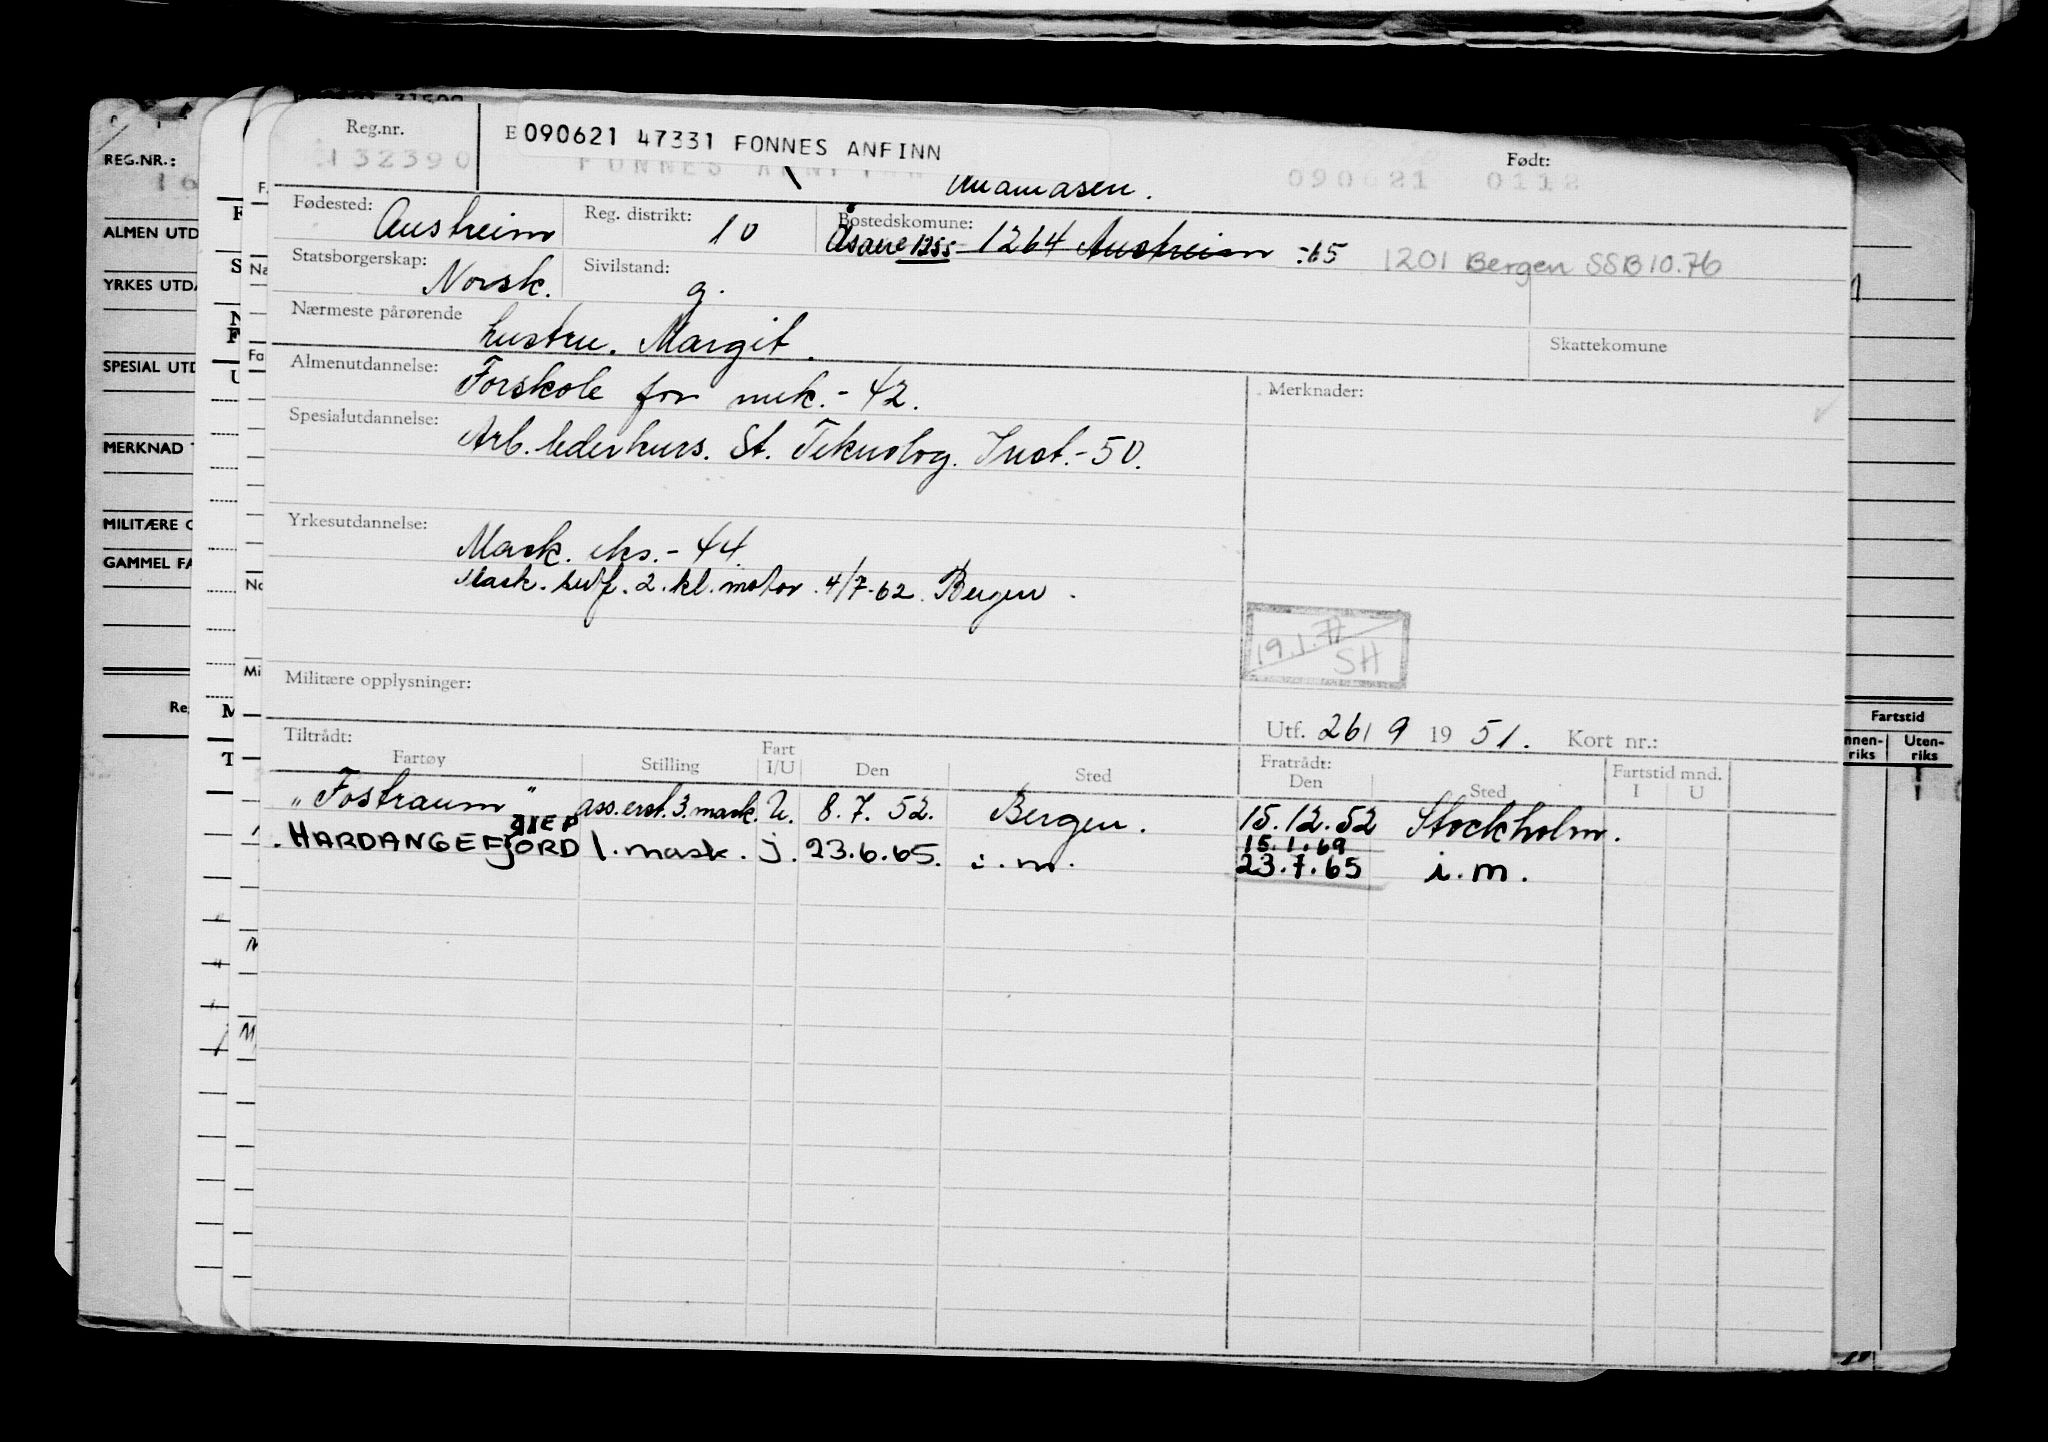 Reg.nr. E090621 47331 FONNES ANFINN Født:
132390 FONNES ANFINN 090621 0112
Fødested: Austrheim Reg. distrikt: 10 Bostedskomune: Åsane 1255 1264 Austrheim -65 1201 Bergen SSB 10.76
Statsborgerskap: Norsk. Sivilstand: g.
Nærmeste pårørende hustru. Margit. Skattekomune
Almenutdannelse: Forskole for mek.- 42. Merknader:
Spesialutdannelse: Arb. lederkurs. St. Teknolog. Inst.- 50.
Yrkesutdannelse: Mask. eks.- 44
Mask. sert. 2. kl. motor. 4/7-62. Bergen.
19.1.77
SH
Militære opplysninger:
Utf. 26/9 1951. Kort nr.:
Tiltrådt: Fratrådt: Fartstid mnd.
Fartøy Stilling Fart I/U Den Sted Den Sted I U
"Fostraum" ass. erst. 3. mask. U. 8.7.52. Bergen. 15.12.52 Stockholm.
15.1.69
HARDANGEFJORD 1. mask. j. 23.6.65. i.m. 23.7.65 i.m.
REG.NR.:
16
ALMEN UTD
YRKES UTDA
SPESIAL UTD
MERKNAD
MILITÆRE
GAMMEL FA
Fartstid
Uten-
riks